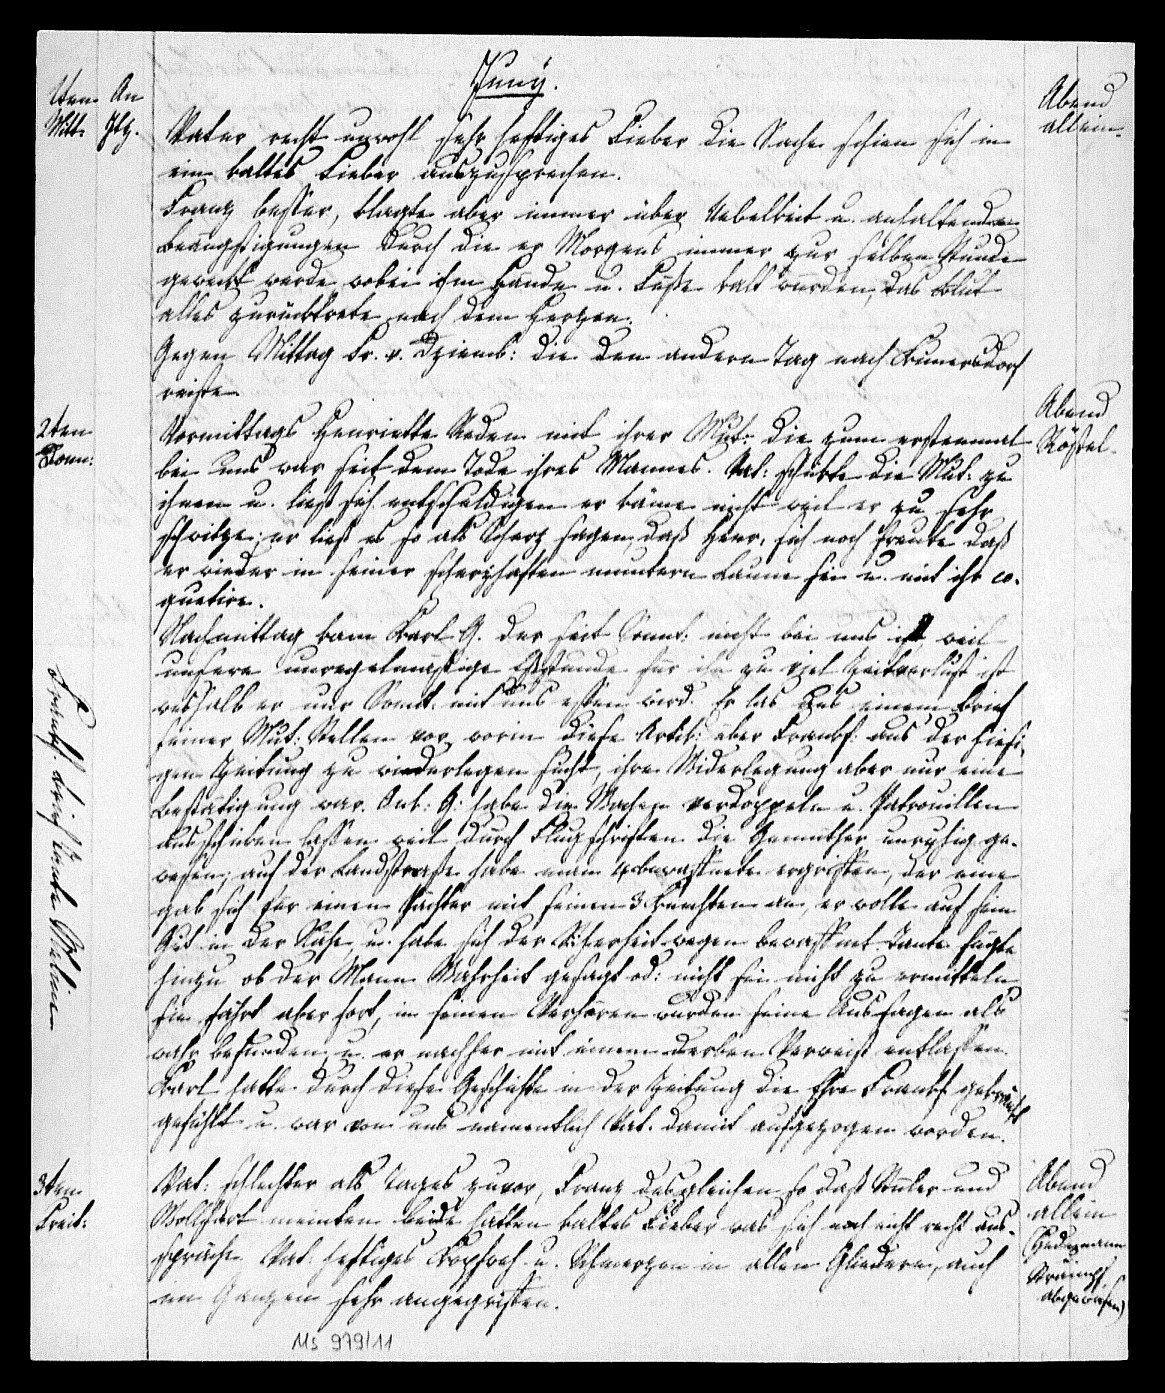 Juny.
1ten An
Mitt: Itz.
Abend
allein.
Vater recht unwohl sehr heftiges Fieber die Sache schien sich in
ein kaltes Fieber auszusprechen.
Franz besser, klagte aber immer über Uebelkeit u. anhaltenden
Beängstigungen durch die er Morgens immer zur selben Stunde
geweckt werde, wobei ihm Hände u. Füße kalt würden, das Blut
alles zurücktrete nach dem Herzen.
Gegen Mittag Fr. v. Dziemb: die den andern Tag nach Kunersdorf
reiste.
2ten
Donn:
Abend
Rößel.
Vormittags Henriette Reden mit ihrer Mut: die zum erstenmal
bei uns war seit dem Tode ihres Mannes. Vat: schickte die Mut: zu
ihnen u. ließ sich entschuldigen er käme nicht weil er zu sehr
schwitze; er ließ es so als Scherz sagen, daß Henr: sich noch freute daß
er wieder in seiner scherzhaften muntern Laune sei u. mit ihr co-
quetire.
Nachmittag kam Karl G. der seit Sonnt: nicht bei uns ißt weil
unsere unregelmäßige Eßstunde für ihn zu viel Zeitverlust ist
weshalb er nur Sonnt: mit uns essen wird. Er las uns einem Brief
seiner Mut: Stellen vor, worin diese Artik: über Frankf: aus der hiesi-
gen Zeitung zu wiederlegen sucht, ihre Widerlegung aber nur eine
Bestätigung war. G: habe die Wachen verdoppeln u. Patrouillen
ausschicken lassen weil durch Flugschriften die Gemüther unruhig ge-
wesen; auf der Landstraße habe man 4 bewaffnete ergriffen, der eine
gab sich für einen Pächter mit seinen 3 Knechten an, er wolle auf sein
Gut in der Nähe u. habe sich der Sicherheit wegen bewaffnet. Tante fügte
hinzu ob der Mann Wahrheit gesagt od: nicht sei nicht zu ermitteln
sie fährt aber fort, in seinen Verhören würden seine Aussagen als
wahr befunden u. er nachher mit einem derben Verweiß entlassen.
Karl hatte durch diese Geschichte in der Zeitung die Ehre Frankf: gekränkt
gefühlt u. war von uns namentlich Vat. damit aufgezogen worden.
Frankf. Brief Tante
3ten
Freit:
Abend
allein
abgewiesen)
Vat: schlechter als Tages zuvor, Franz desgleichen so daß und
Wolfart meinten beide hätten kaltes Fieber was sich noch nicht recht aus-
spräche. Vat: heftiges Kopfweh u. Schmerzen in allen Gliedern, auch
im Ganzen sehr angegriffen.
Ms 979/11